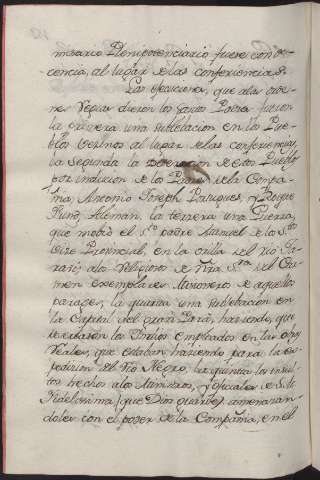 misario Plenipotenciario fuere con de-
cencia, al lugar de las conferencias.
Las operaciones, que a las orde-
nes Regias dieron los
la primera una sublevacion en los Pue-
blos Vecinos al lugar de las conferencias,
la segunda la de estos Pueblos
por induccion de los Padres de la Compa-
ñia, Antonio Joseph, Portugues, y Roque
Hund, Aleman, la tercera una Guerra,
que el Padre Manuel de los
Provincial, en la orilla del Rio
a los Religiosos de Nra Sra del Car-
men exemplares Misioneros de aquellos
parages, la quarta una sublevacion en
la Capital del gran Pará, haciendo, que
los Indios empleados en las obras
Reales, que estaban haciendo para la ex-
pedicion del Rio Negro, la quinta los insul-
tos hechos a los Ministros, y oficiales de S. M.
Fidelisima (que Dios guarde) amenazan-
doles con el poder de la Compañia, en el